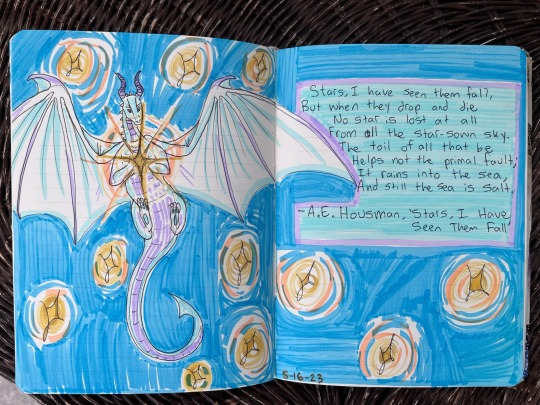 Stars, I have seen them fall,
But when they drop and die
No star is lost at all
From all the star-sown sky.
The toil of all that be
Helps not the primal fault;
It rains into the sea,
And still the sea is salt.
-A.E. Housman, "Stars, I Have
Seen Them Fall"
5-16-23